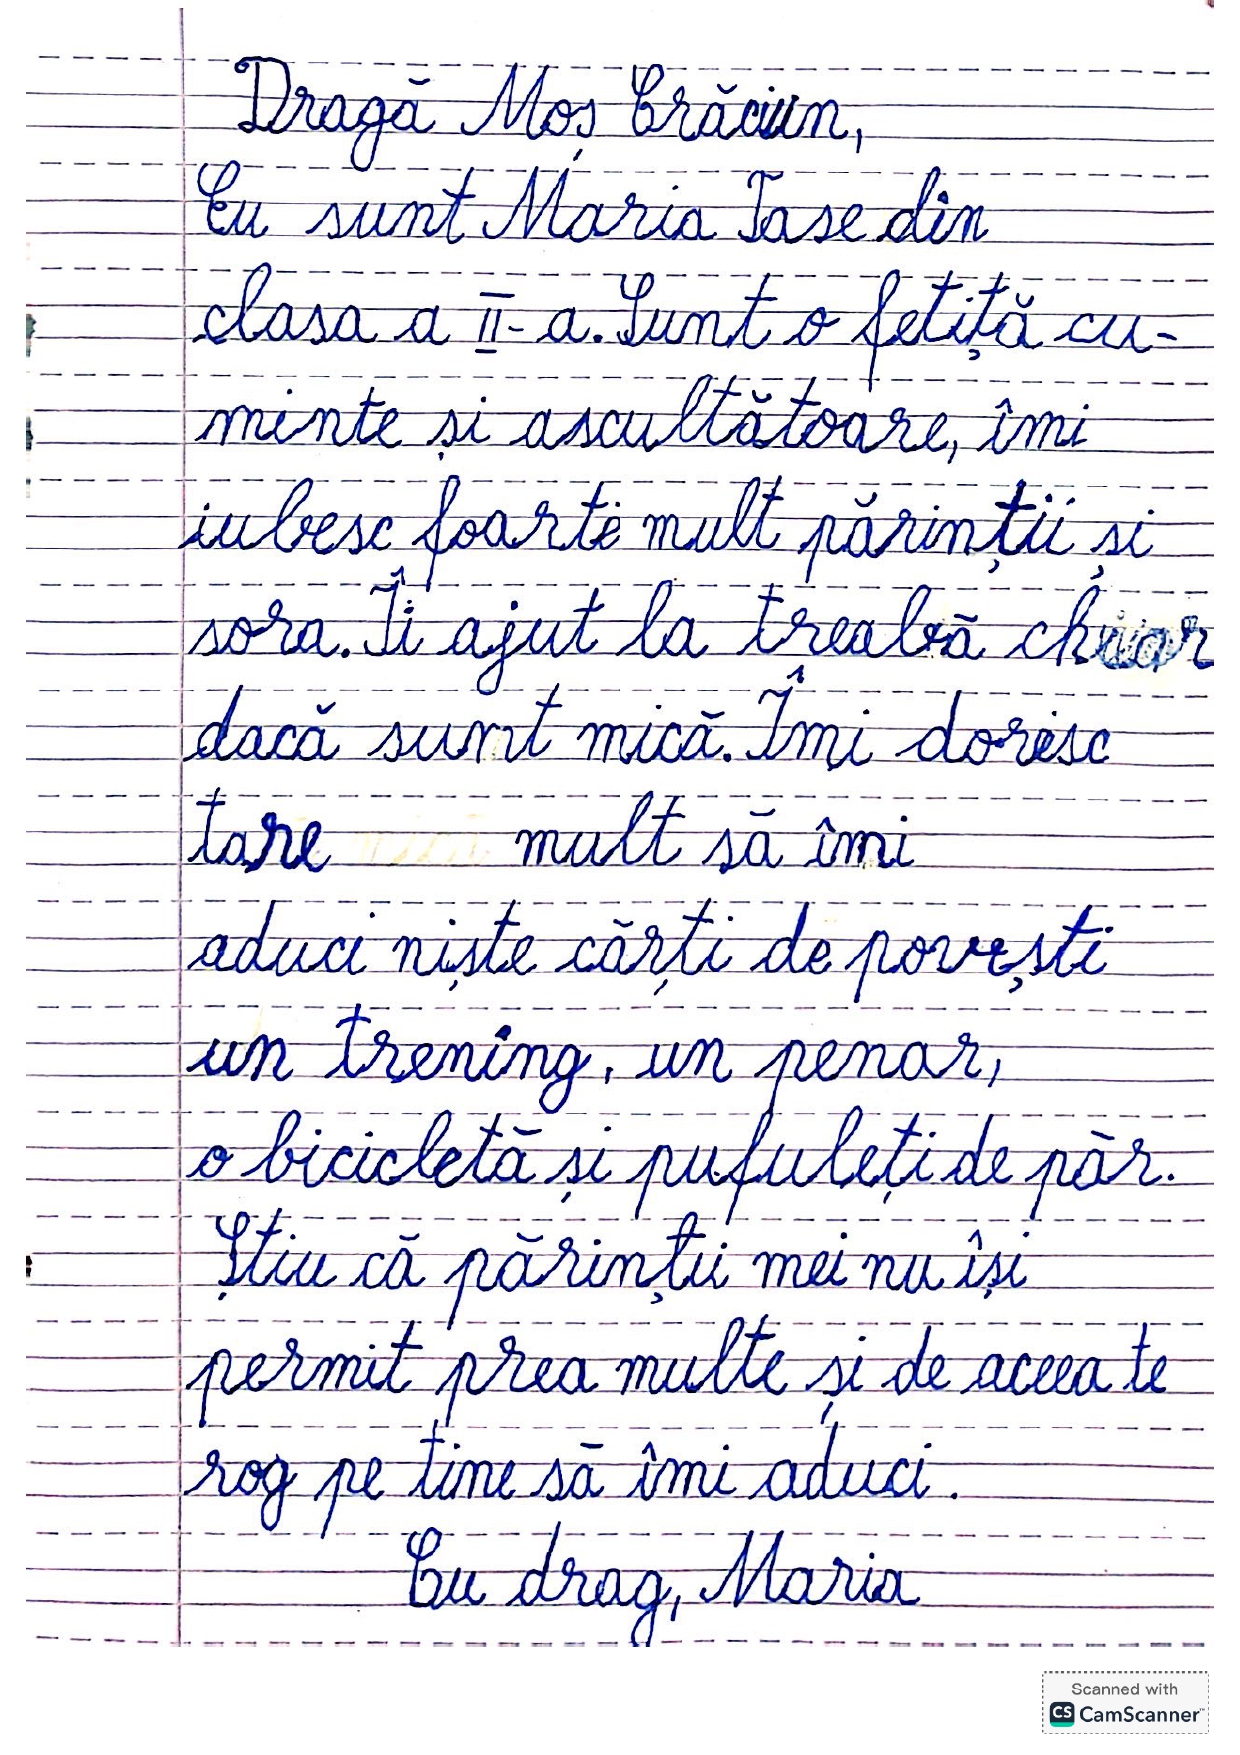 Dragă Moș Crăciun,
Eu sunt Maria Tase din
clasa a II-a. Sunt o fetiță cu-
minte și ascultătoare, îmi
iubesc foarte mult părinții și
sora. Îi ajut la treabă chiar
dacă sunt mică. Îmi doresc
tare mult să îmi
aduci niște cărți de povești
un trening, un penar,
o bicicletă și pufuleți de păr.
Știu că părinții mei nu își
permit prea multe și de aceea te
rog pe tine să îmi aduci.
Cu drag, Maria
Scanned with
CS CamScanner